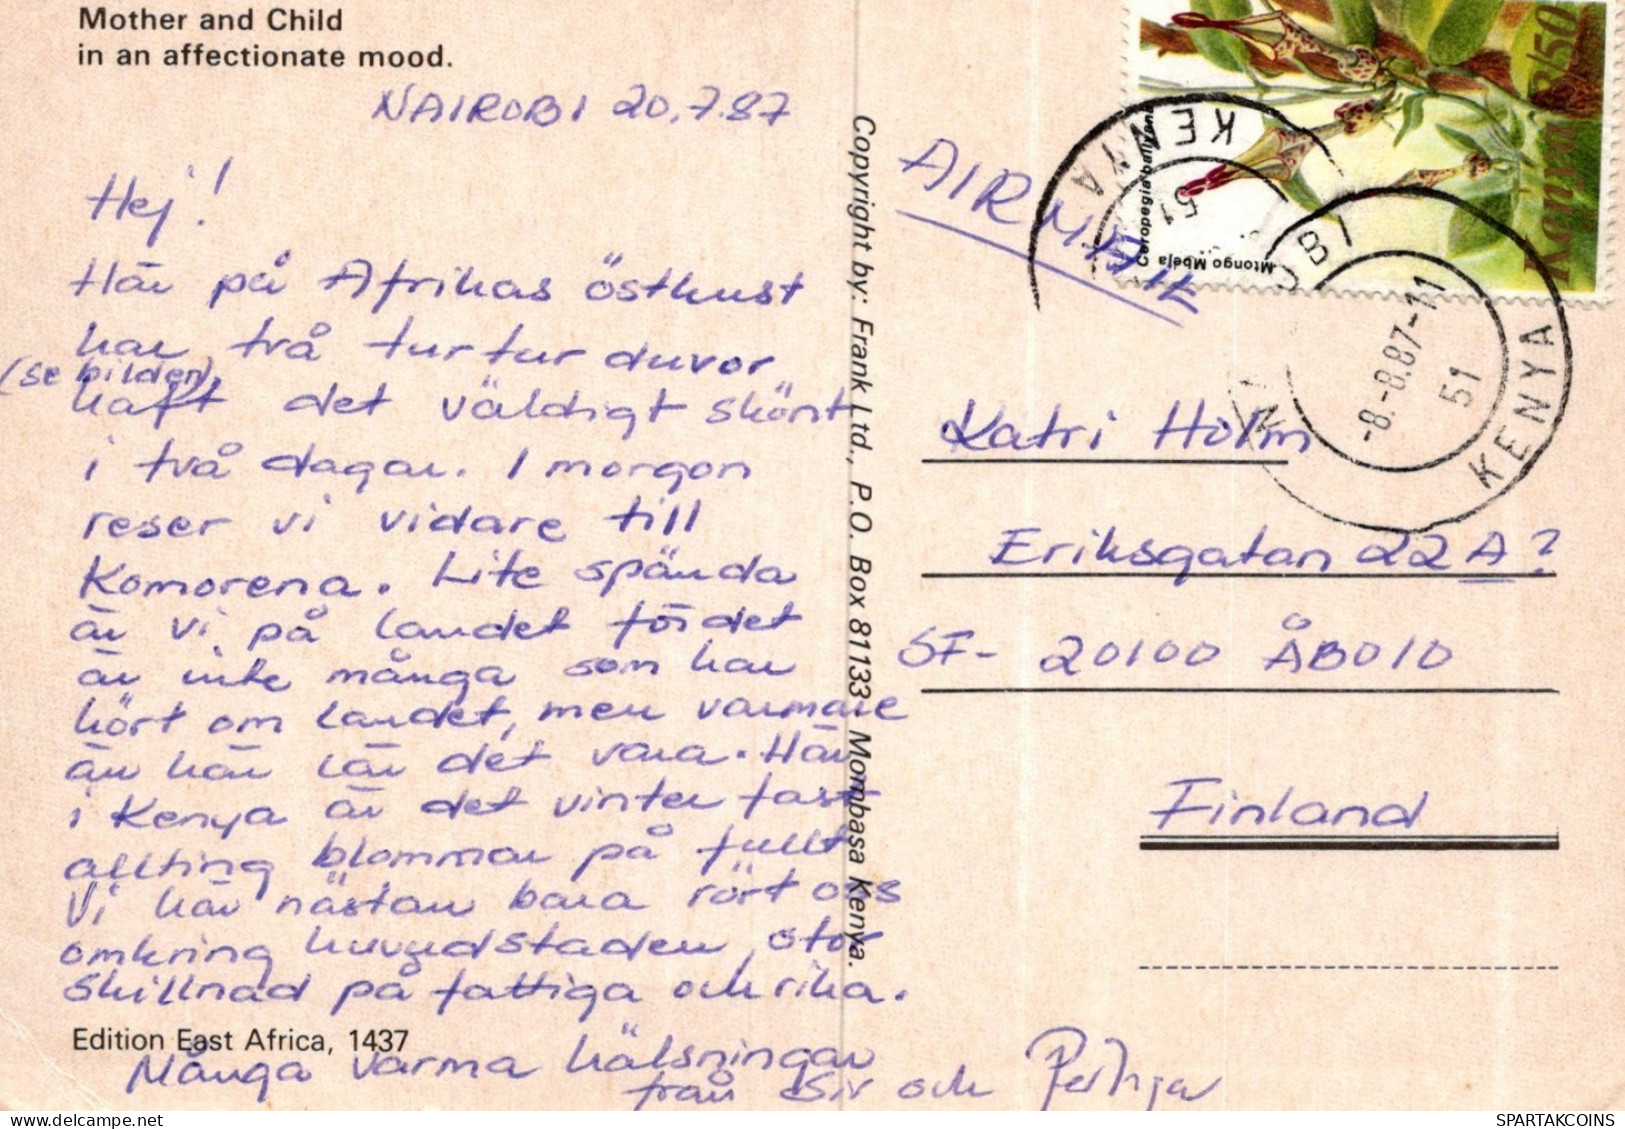 Mother and Child
in an affectionate mood.
NAIROBI 20.7.87
Hej!
Här på Afrikas östkust
har två turturduvor
(se bilden)
haft det väldigt skönt
i två dagar. I morgon
reser vi vidare till
Komorena. Lite spända
är vi på landet för det
är inte många som har
hört om landet, men varmare
än här lär det vara. Här
i Kenya är det vinter fast
allting blommar på fullt
Vi har nästan bara rört oss
omkring huvudstaden, stor
skillnad på fattiga och rika.
Edition East Africa, 1437
Många varma hälsningar
från Siv och
Copyright by: Frank Ltd., P.O. Box 81133 Mombasa Kenya.
AIR MAIL
Kenya 3/50
Ceropegia ballyana
Mtongo Mbeja
KENYA
51
-8.-8.87-11
51
KENYA
Katri Holm
Eriksgatan 22 A?
SF- 20100 ÅBO 10
Finland
SPARTAKCOINS